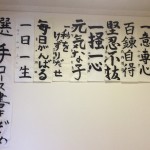 一意専心
百錬自得
堅忍不抜
一捶一心
元気な子
毎日がんばる
一日一生